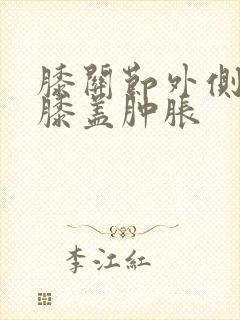 膝關節外側
膝盖肿脹
李江紅